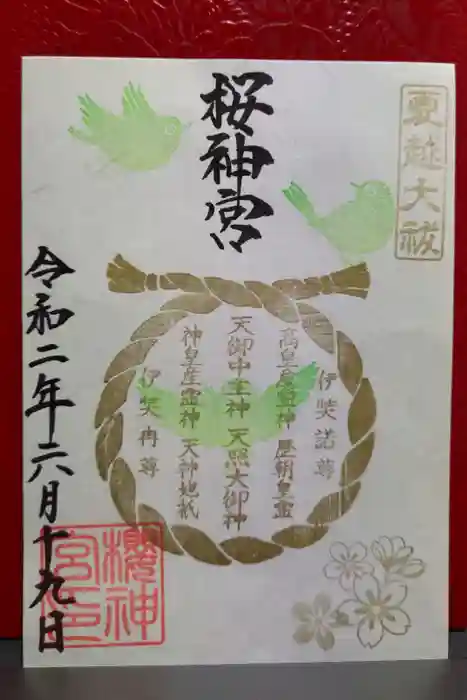 夏越大祓
桜神宮
伊奘諾尊
高皇産霊神 歴朝皇霊
天御中主神 天照大御神
神皇産霊神 天神地祇
伊奘冉尊
令和二年六月十九日
櫻神宮印